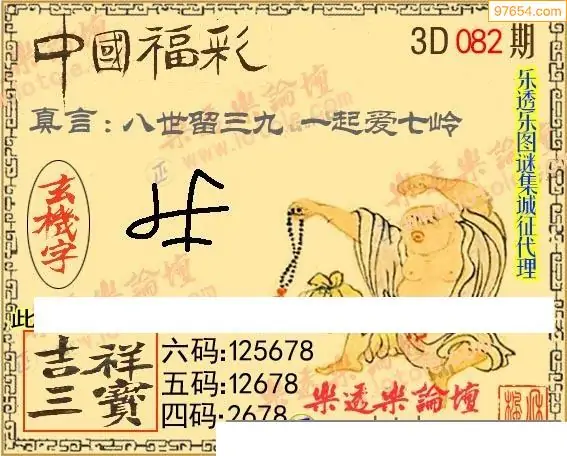 97654.com
中國福彩
3D 082 期
真言:八世留三九 一起爱七岭
乐透乐图谜集城征代理
玄機字
此
吉祥三寶
六码:125678
五码:12678
四码:2678
樂透樂論壇